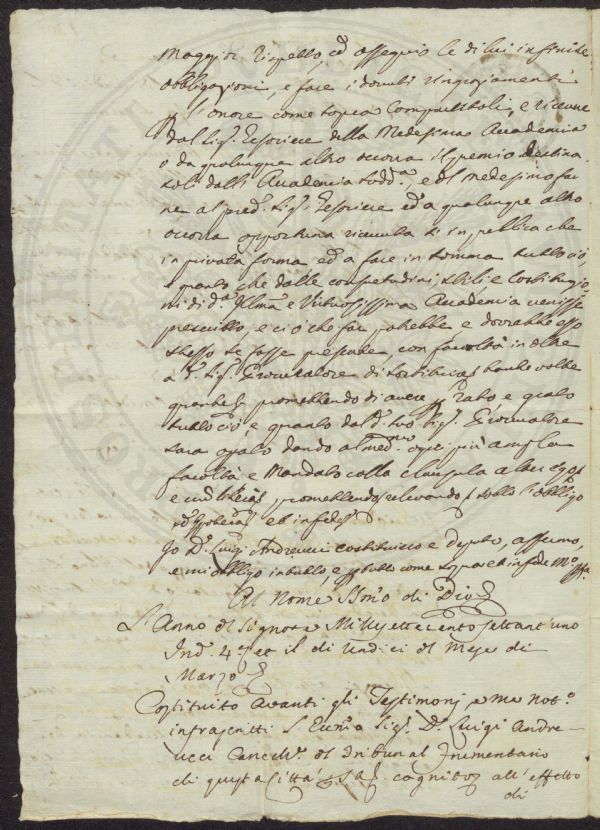 maggior rispetto, ed ossequio le di lui infinite
obbligazioni, e fare i dovuti ringraziamenti
l'onore come sopra Compartitoli, e ricevere
dal Sig.r Tesoriere della Medesima Accademia
o da qualunque altro occorra il premio destina
toli dalli Accademia sudd.a, e del medesimo far
ne al pred.o Sig.r Tesoriere ed a qualunque altro
occorra opportuna ricevuta sì in publica che
in privata forma ed a fare in somma tutto ciò,
e quanto che dalle consuetudini, stili e Costituzio
ni di d.a Ill.ma e Virtuosissima Accademia venisse
prescritto, e ciò che far potrebbe e dovrebbe esso
stesso se fosse presente, con facoltà inoltre
a d.o Sig.r Procuratore di sostituire tante volte
quante promettendo di avere rato e grato
tutto ciò, e quanto dal d.o suo Sig.r Procuratore
sarà oprato dando al med.mo ogni più ampla
facoltà e Mandato colla clausula alter ego
e cum libera promettendo rilevando sotto l'obbligo
et in fede
Io D. Luigi Andreucci costituisco e deputo, assumo,
e mi obbligo in tutto, e per tutto come sopra et in fede M.o pp.a
Al Nome SSmo di Dio
L'Anno del Signore Millesettecento settant'uno
Ind. 4.a et il dì Undici del Mese di
Marzo
Costituito avanti gli Testimonj e me Not.o
infrascritti L'Ecc.mo Sig.r D. Luigi Andre-
ucci Cancell.re del Tribunal Frumentario
di questa Città cognito all'effetto
di